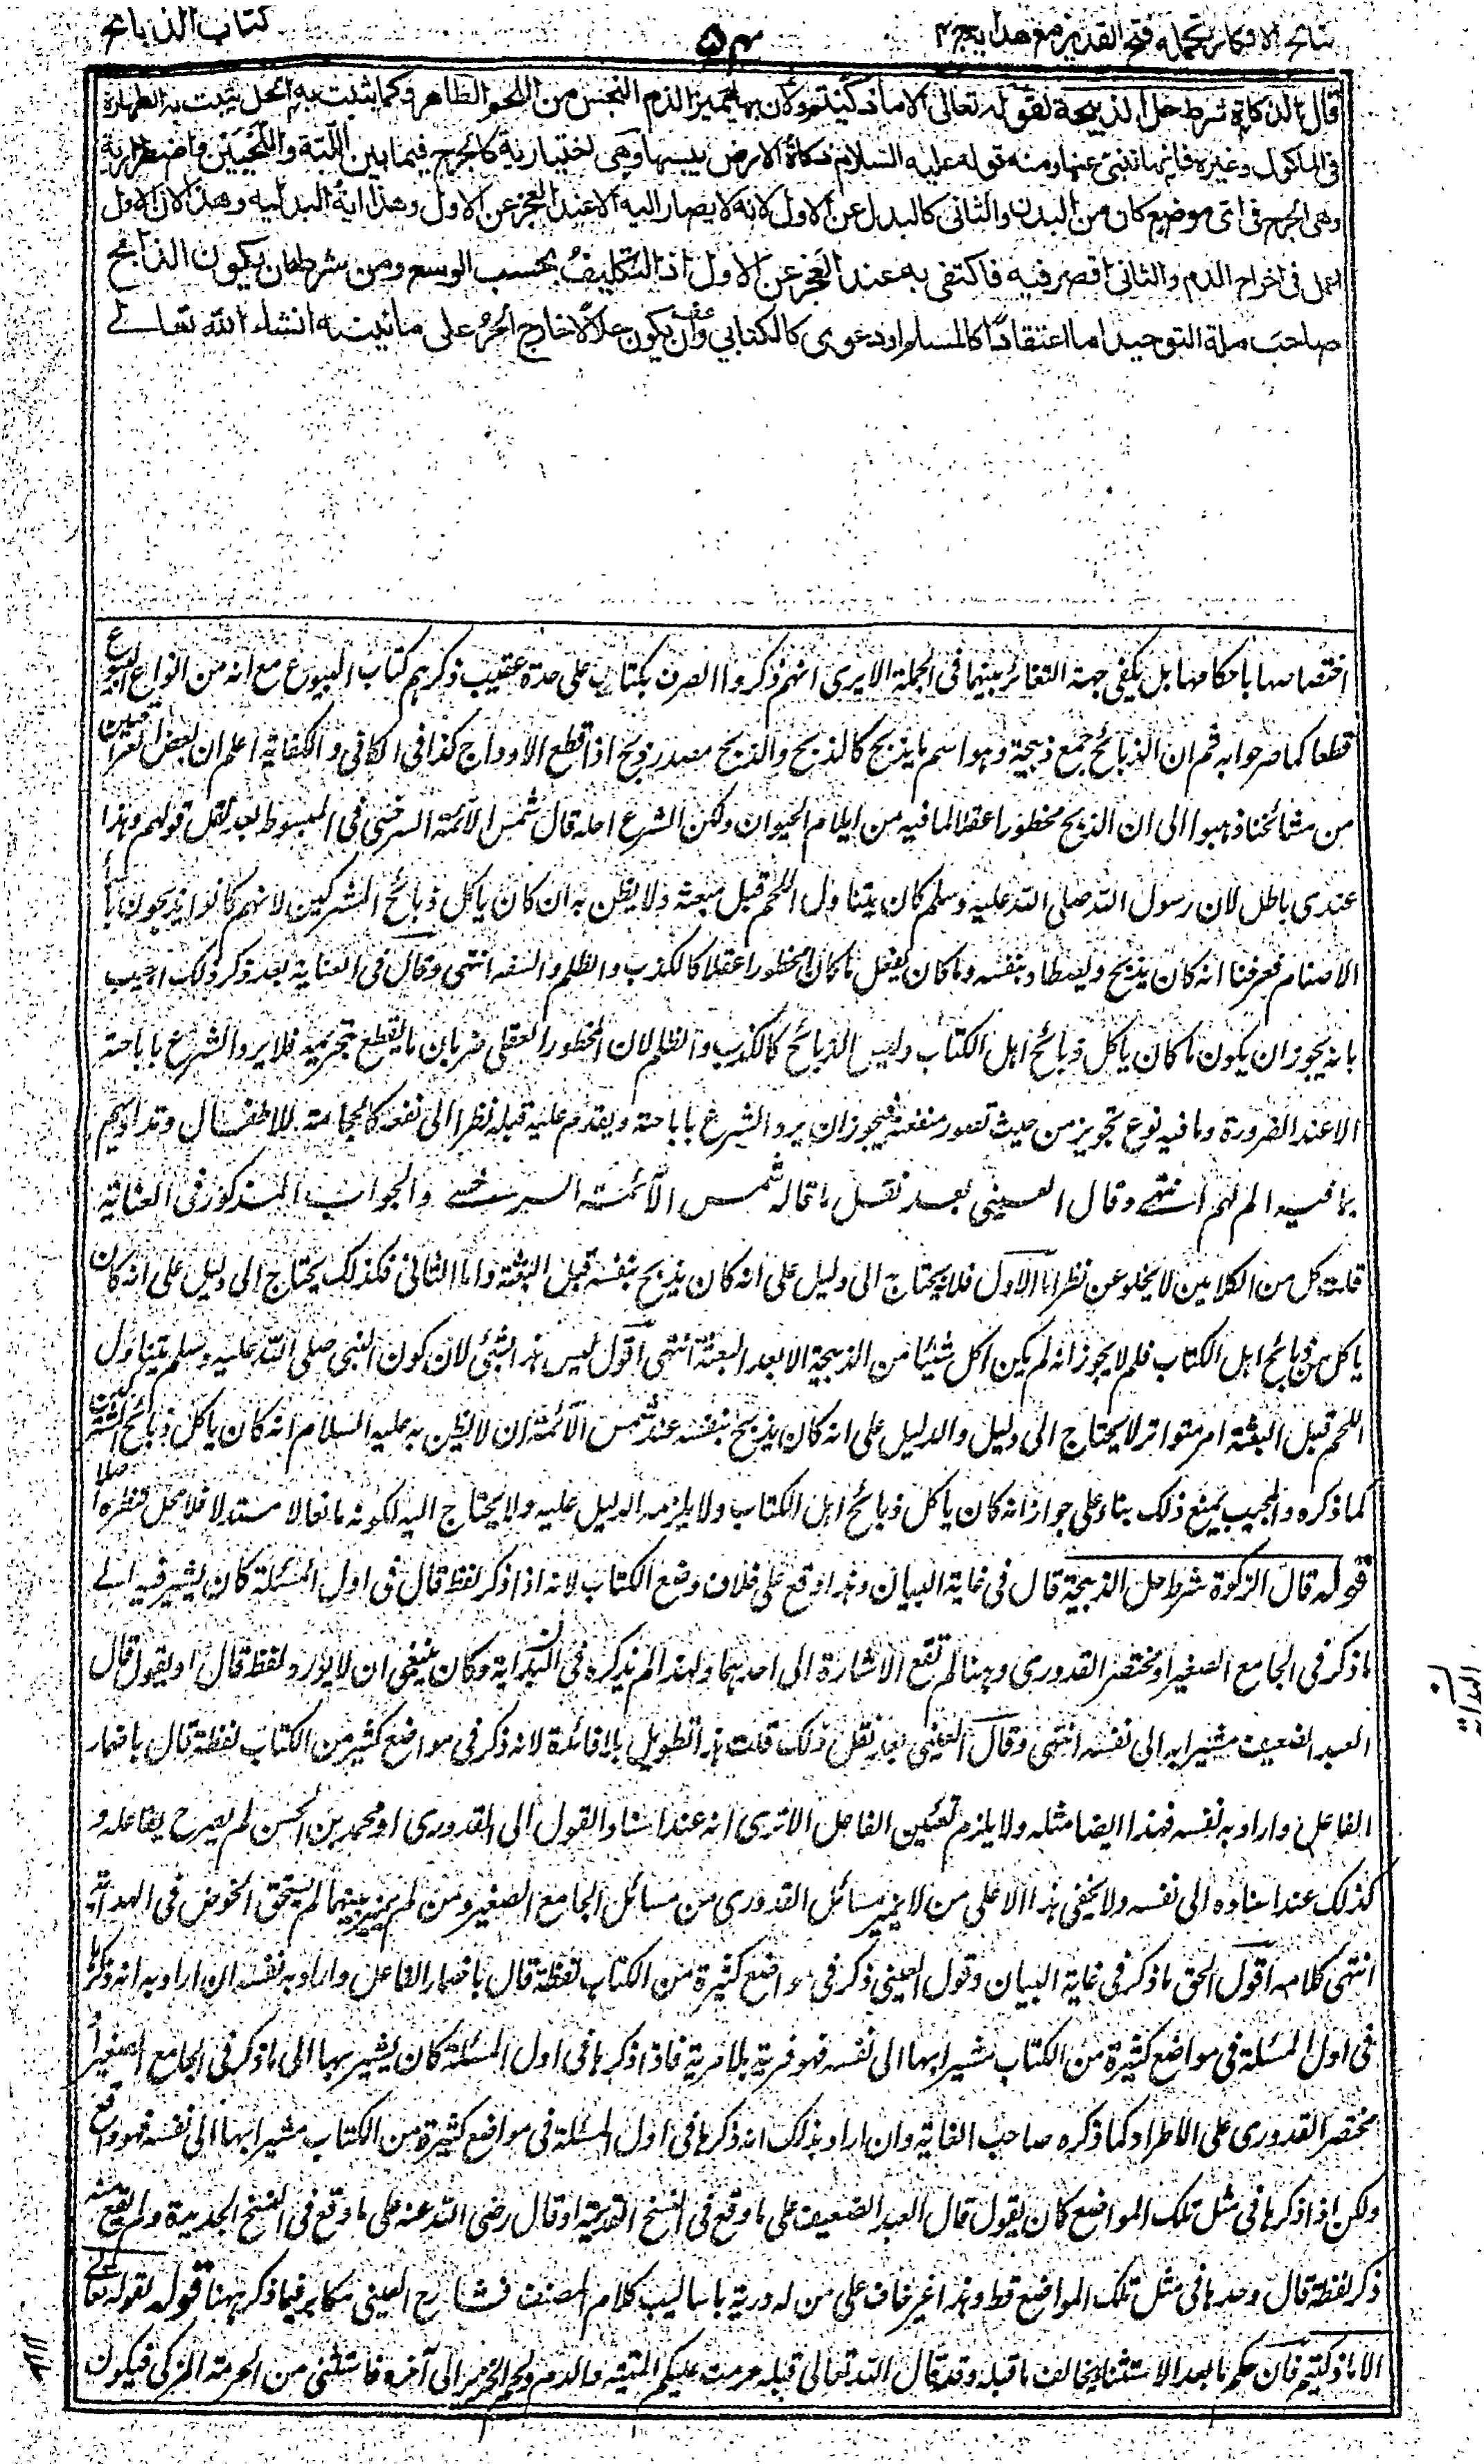 نتائج الافكار تكملہ فتح القدیر مع هدایہ ج ۴
۵۴
کتاب الذبائح
قال الذكاة شرط حل الذبيحة لقوله تعالى الا ما ذكيتم ولان بها يتميز الدم النجس من اللحم الطاهر وكما يثبت به الحل يثبت به الطهارة
فى الماكول وغيره فانها تنبئ عنها ومنه قوله عليه السلام ذكاة الارض يبسها وهى اختيارية كالجرح فيما بين اللبة واللحيين واضطرارية
وهى الجرح فى اى موضع كان من البدن والثانى كالبدل عن الاول لانه لا يصار اليه الا عند العجز عن الاول وهذا اية البدلية وهذا لان الاول
اعمل فى اخراج الدم والثانى اقصر فيه فاكتفى به عند العجز عن الاول اذ التكليف بحسب الوسع ومن شرطه ان يكون الذابح
صاحب ملة التوحيد اما اعتقادا كالمسلم او دعوى كالكتابي وان يكون حلالا خارج الحرم على ما نبينه انشاء الله تعالے
اختصاصها باحكامها بل يكفى جهة التغائر بينهما فى الجملة الا يرى انهم ذكروا الصرف بكتاب على حدة عقيب ذكرهم كتاب البيوع مع انه من انواع البيوع
قطعا كما صرحوا به ثم ان الذبائح جمع ذبيحة وهو اسم ما يذبح كالذبح والذبح مصدر ذبح اذا قطع الاوداج كذا فى الكافى والكفاية اعلم ان بعض العراقيين
من مشائخنا ذهبوا الى ان الذبح محظور عقلا لما فيه من ايلام الحيوان ولكن الشرع احله قال شمس الائمة السرخسى فى المبسوط بعد نقل قولهم وهذا
عندى باطل لان رسول الله صلى الله عليه وسلم كان يتناول اللحم قبل مبعثه ولا يظن به ان كان ياكل ذبائح المشركين لانهم كانوا يذبحون با
الاصنام فعرفنا انه كان يذبح ويصطاد بنفسه وما كان يفعل ما كان محظورا عقلا كالكذب والظلم والسفه انتهى وقال فى العناية بعد ذكر ذلك اجيب
بانه يجوز ان يكون ما كان ياكل ذبائح اهل الكتاب وليس الذبائح كالكذب والظلم لان المحظور العقلى ضربان ما يقطع بتحريمه فلا يرد الشرع باباحته
الا عند الضرورة وما فيه نوع تجويز من حيث تصور منفعته فيجوز ان يرد الشرع باباحته ويقدم عليه قبله نظرا الى نفعه كالحجامة للاطفال وتداويهم
بما فيه الم لهم انتهے وقال العينى بعد نقل ما قاله شمس الائمة السرخسے والجواب المذكور فى العناية
قلت كل من الكلامين لا يخلو عن نظر اما الاول فلا يحتاج الى دليل على انه كان يذبح بنفسه قبل البعثة واما الثانى فكذلك يحتاج الى دليل على انه كان
ياكل من ذبائح اهل الكتاب فلم لا يجوز انه لم يكن اكل شيئا من الذبيحة الا بعد البعثة انتهى اقول ليس هذا بشئ لان كون النبى صلى الله عليه وسلم يتناول
اللحم قبل البعثة امر متواتر لا يحتاج الى دليل والدليل على انه كان يذبح بنفسه عند شمس الائمة ان لا يظن به عليه السلام انه كان ياكل ذبائح المشركين
كما ذكره والمجيب يمنع ذلك بناء على جواز انه كان ياكل ذبائح اهل الكتاب ولا يلزمه الدليل عليه ولا يحتاج اليه لكونه مانعا لا مستدلا فلا محل لنظره اصلا
قوله قال الزكوة شرط حل الذبيحة قال فى غاية البيان وهذا وقع على خلاف وضع الكتاب لانه اذا ذكر لفظ قال فى اول المسئلة كان يشير فيه الے
ما ذكر فى الجامع الصغير او مختصر القدورى وههنا لم تقع الاشارة الى احدهما ولهذا لم يذكره فى البداية وكان ينبغى ان لا يورد لفظ قال او يقول قال
العبد الضعيف مشيرا به الى نفسه انتهى وقال العينى بعد نقل ذلك قلت هذا تطويل بلا فائدة لانه ذكر فى مواضع كثير من الكتاب لفظة قال باضمار
الفاعل واراد به نفسه فهذا ايضا مثله ولا يلزم تعيين الفاعل الا ترى انه عند اسناد القول الى القدورى او محمد بن الحسن لم يصرح بفاعله و
كذلك عند اسناده الى نفسه ولا يخفى هذا الا على من لا يميز مسائل القدورى من مسائل الجامع الصغير ومن لم يميز بينهما لم يستحق الخوض فى الهداية
انتهى كلامه اقول الحق ما ذكر فى غاية البيان وقول العينى ذكر فى مواضع كثيرة من الكتاب لفظة قال باضمار الفاعل واراد به نفسه ان اراد به انه ذكرها
فى اول المسئلة فى مواضع كثيرة من الكتاب مشيرا بها الى نفسه فهو فرية بلا مرية فاذا ذكرها فى اول المسئلة كان يشير بها الى ما ذكر فى الجامع الصغير او
مختصر القدورى على الاطراد كما ذكره صاحب الغاية وان اراد بذلك انه ذكرها فى اول المسئلة فى مواضع كثيرة من الكتاب مشيرا بها الى نفسه فهو واقع
ولكن اذا ذكرها فى مثل تلك المواضع كان يقول قال العبد الضعيف على ما وقع فى النسخ القديمة او قال رضى الله عنه على ما وقع فى النسخ الجديدة ولم يقع منه
ذكر لفظة قال وحدها فى مثل تلك المواضع قط وهذا غير خاف على من له درية باساليب كلام المصنف فشارح العينى مكابر فيما ذكر ههنا قوله لقوله تعالے
الا ما ذكيتم فان حكم ما بعد الاستثناء يخالف ما قبله وقد قال الله تعالى قبله حرمت عليكم الميتة والدم ولحم الخنزير الى آخره فاستثنى من الحرمة المزكى فيكون